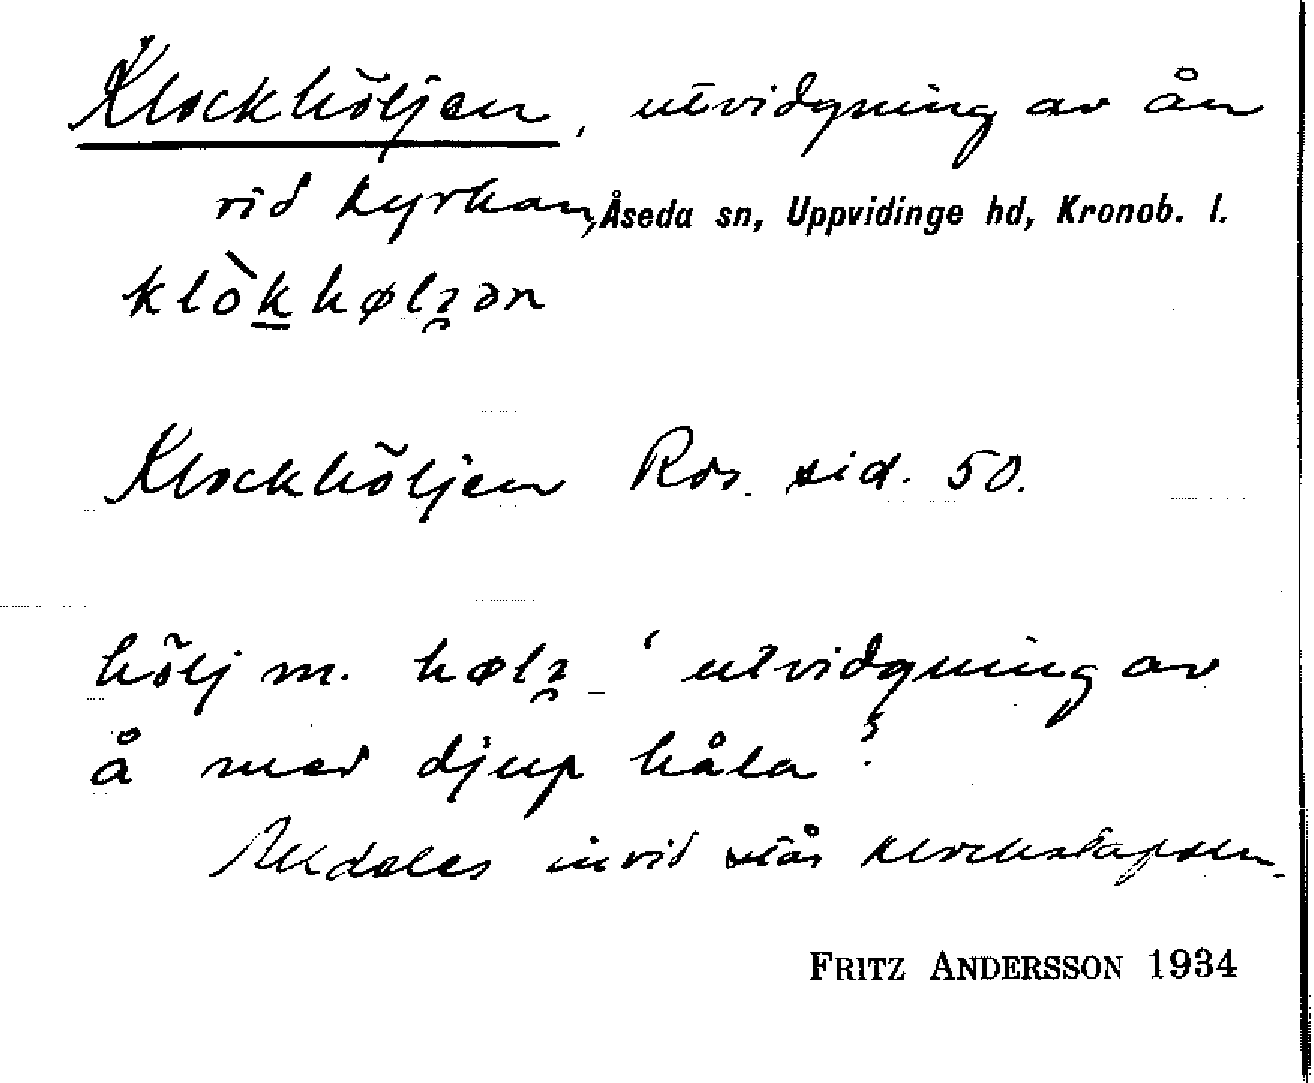 Klockhöljen, utvidgning av ån
vid kyrkan, Åseda sn, Uppvidinge hd, Kronob. l.
klòkhølɜ̯ən
Klockhöljen Ros. sid. 50.
hölj m. hølɜ̯ ‘utvidgning av
å med djup håla’.
Alldeles invid står klockstapeln.
FRITZ ANDERSSON 1934